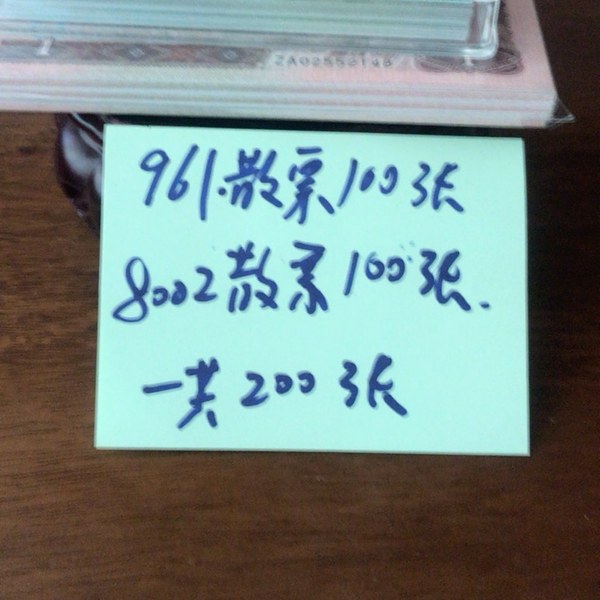 961散票100张
8002散票100张.
一共200张